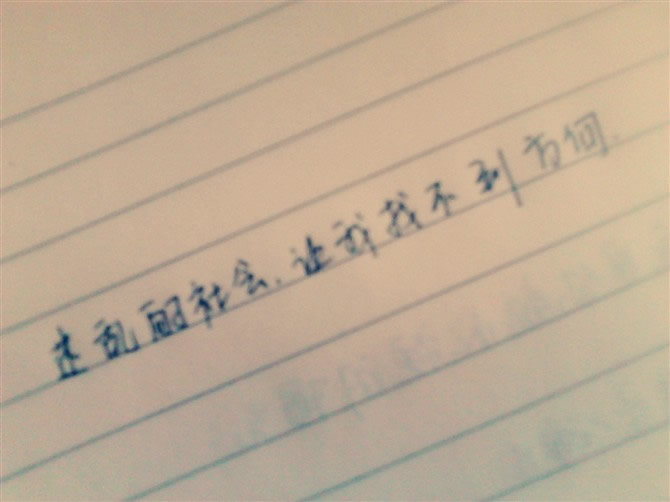 乱的社会,让我找不到方向.